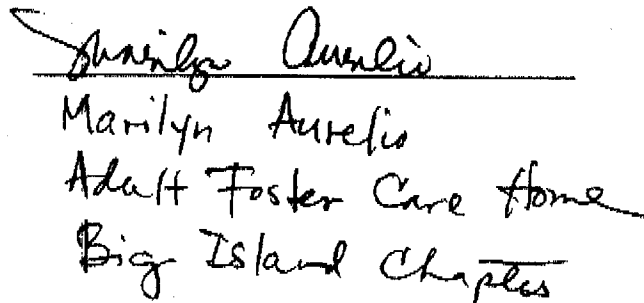 Marilyn Aurelio
Marilyn Aurelio
Adult Foster Care Home
Big Island Chapter